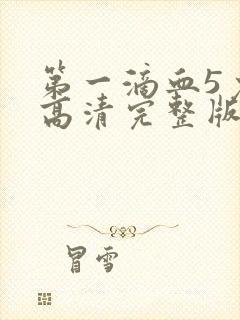 第一滴血5
高清完整版
冒雪